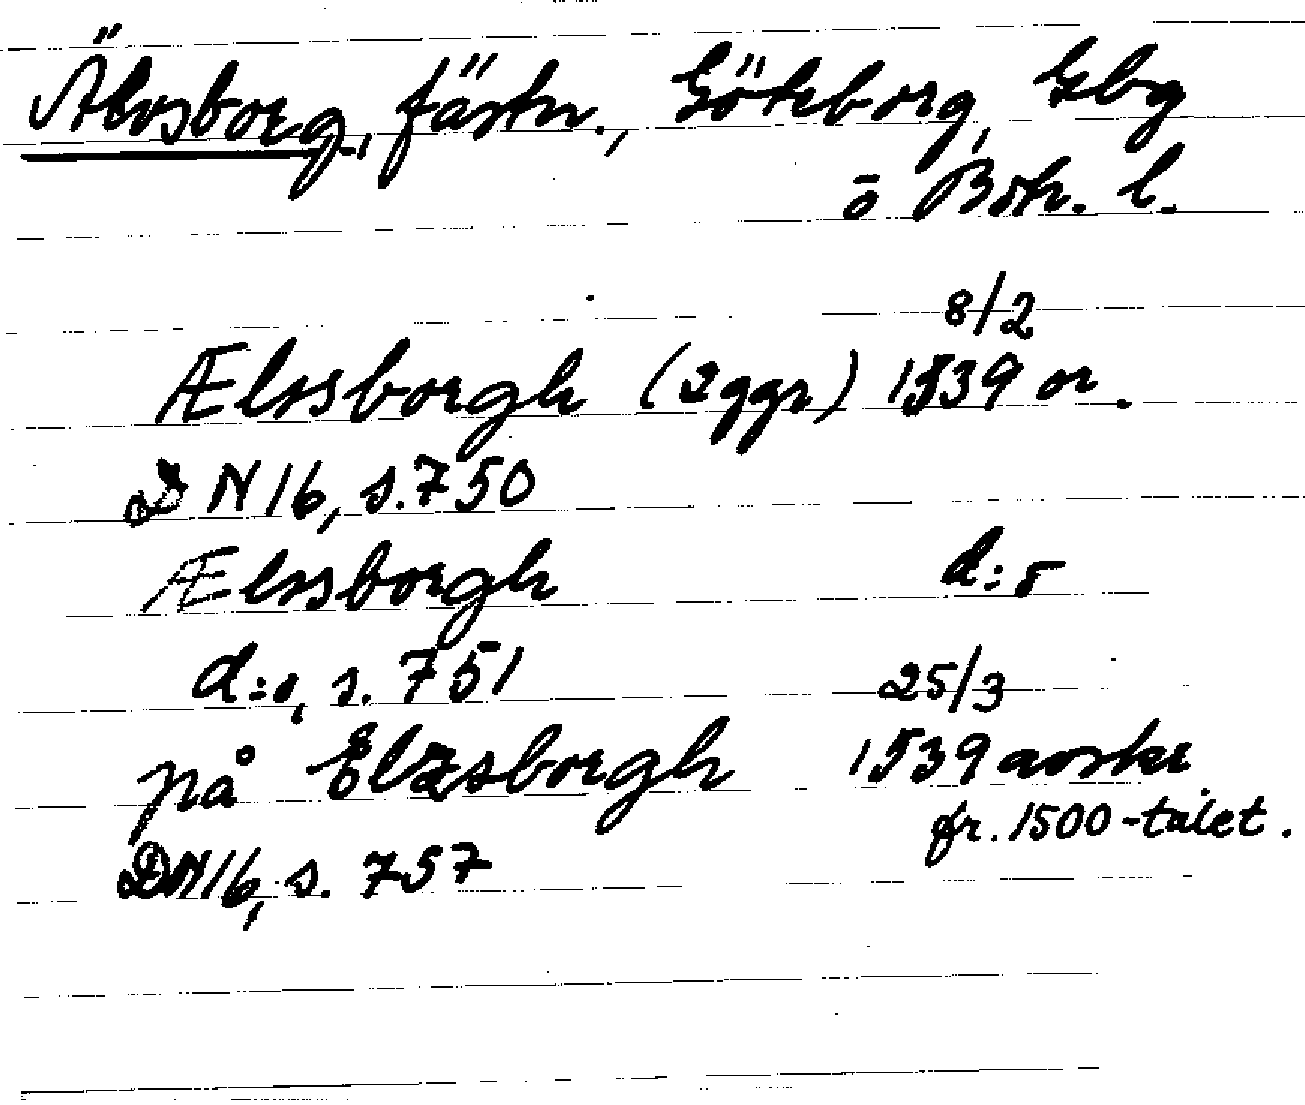 Älvsborg, fästn., Göteborg, Gbg
o Boh. l.
8/2
Ælssborgh (2 ggr) 1539 or.
DN 16, s. 750
Ælssborgh d:o
d:o, s. 751 25/3
på Elzsborgh 1539 avskr
fr. 1500-talet.
DN 16, s. 757